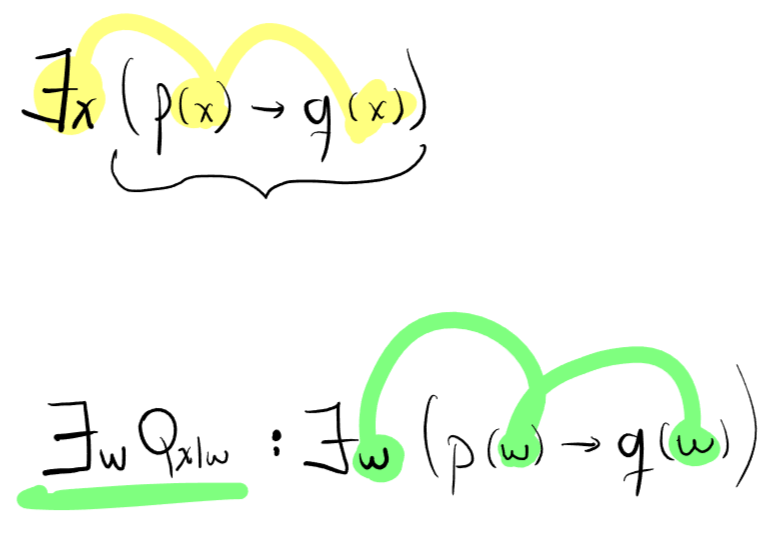 ∃x (p(x) → q(x))
∃w Qx|w : ∃w (p(w) → q(w))